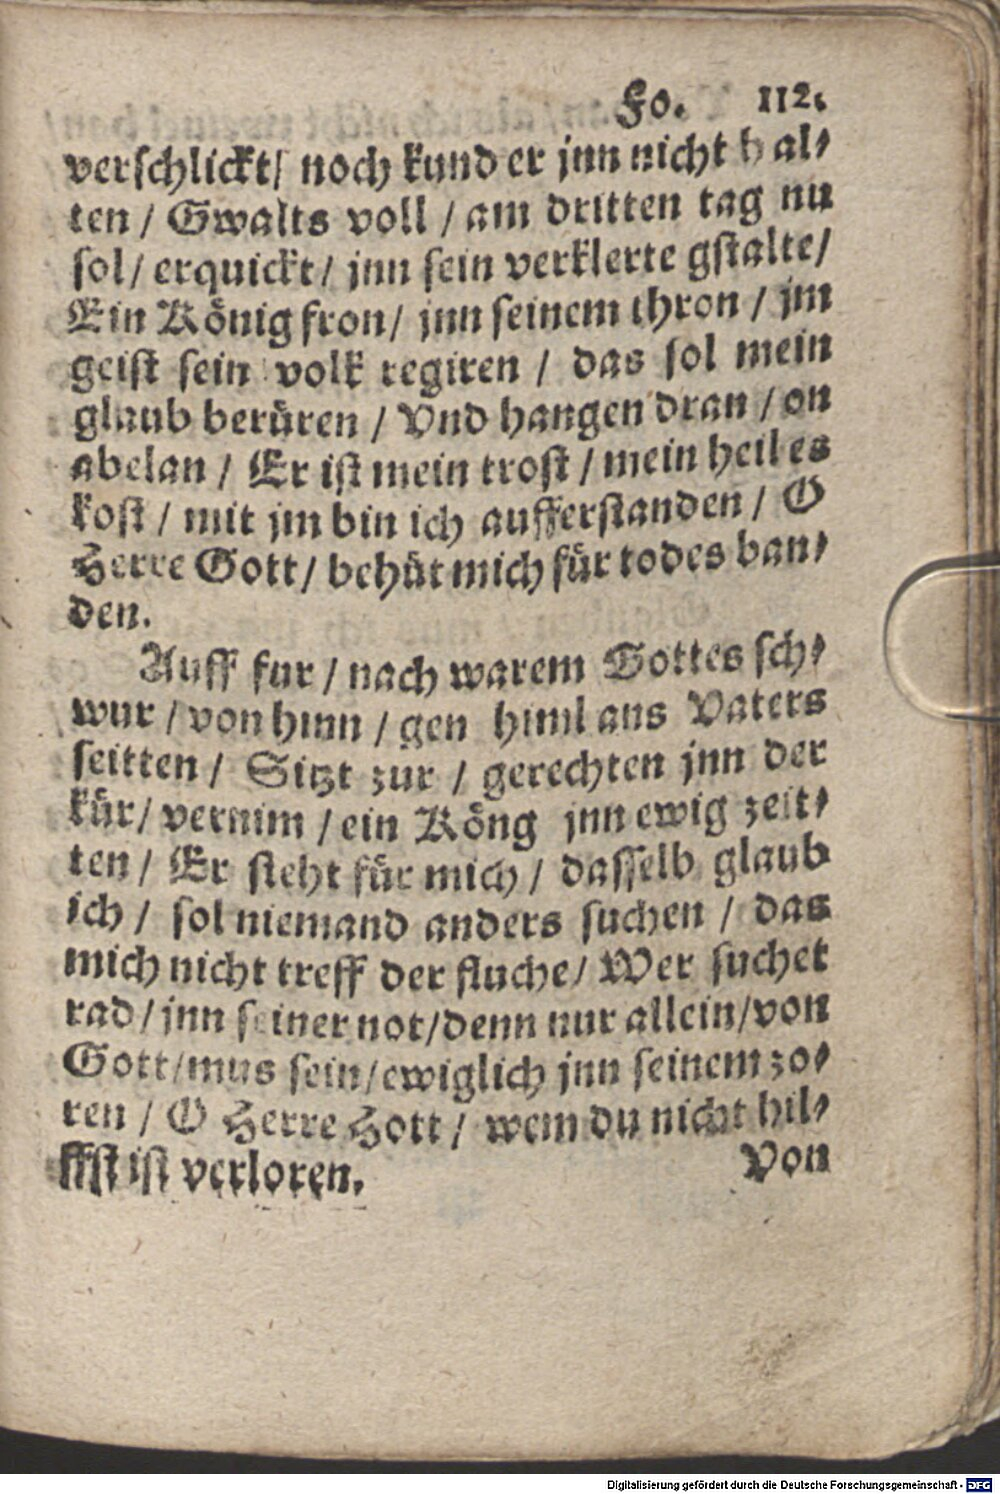 Fo. 112.
verschlickt/ noch kund er jnn nicht hal⸗
ten / Gwalts voll / am dritten tag nu
sol/ erquickt/ jnn sein verklerte gstalte/
Ein König fron/ jnn seinem thron / jm
geist sein volk regiren / das sol mein
glaub berüren / Vnd hangen dran / on
abelan / Er ist mein trost / mein heil es
kost / mit jm bin ich aufferstanden / O
Herre Gott/ behüt mich für todes ban⸗
den.
Auff fur / nach warem Gottes sch⸗
wur / von hinn / gen himl ans Vaters
seitten / Sitzt zur / gerechten jnn der
kür/ vernim / ein Köng jnn ewig zeit⸗
ten / Er steht für mich / dasselb glaub
ich / sol niemand anders suchen / das
mich nicht treff der fluche/ Wer suchet
rad/ jnn seiner not/denn nur allein/von
Gott/mus sein/ewiglich jnn seinem zo⸗
ren / O Herre Hott / wem du nicht hil⸗
ffst ist verloren.
Von
Digitalisierung gefördert durch die Deutsche Forschungsgemeinschaft - DFG